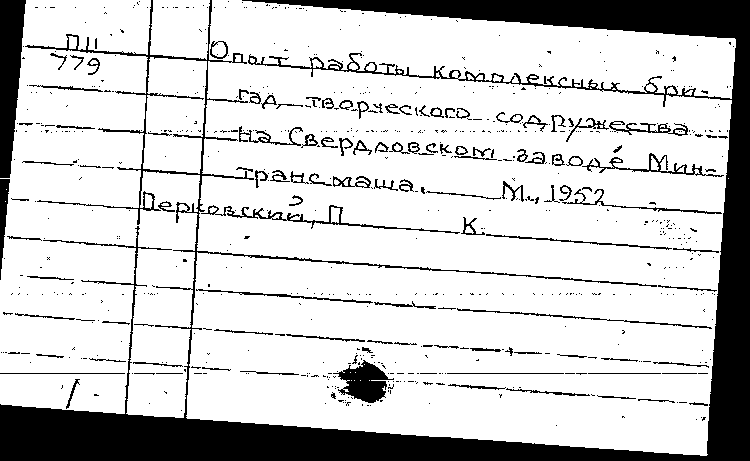 П11
779
Опыт работы комплексных бри-
гад творческого содружества
на Свердловском заводе Мин-
трансмаша. М., 1952
Перковский, П К.